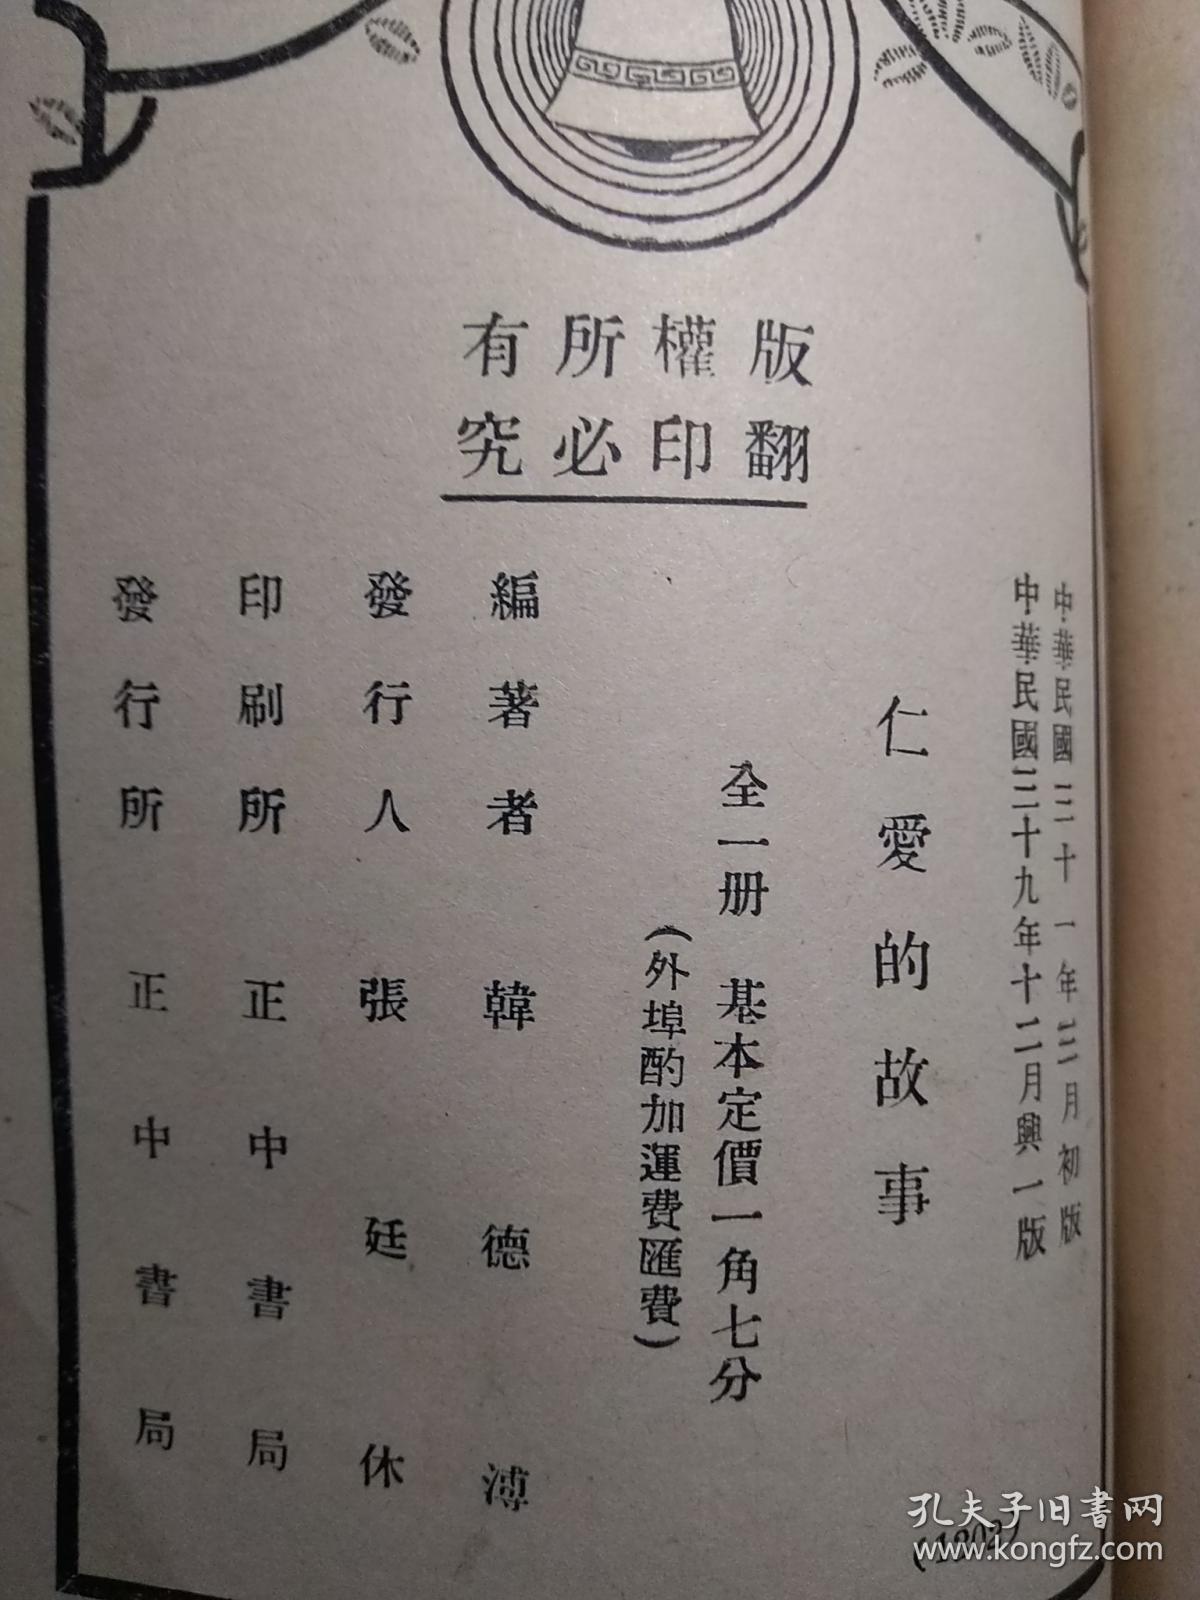 版權所有
翻印必究
中華民國三十一年三月初版
中華民國三十九年十二月興一版
仁愛的故事
全一册 基本定價一角七分
(外埠酌加運費匯費)
編著者 韓德溥
發行人 張廷休
印刷所 正中書局
發行所 正中書局
孔夫子旧書网
www.kongfz.com